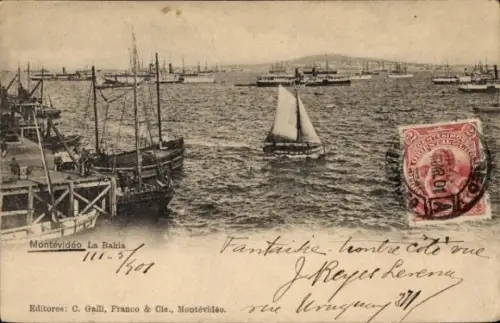 Montevidéo La Bahia
111-5/901
Fantaisie - contre côté vue
J. Reyes Lerena
rue Uruguay 371
Editores: C. Galli, Franco & Cie., Montévidéo.